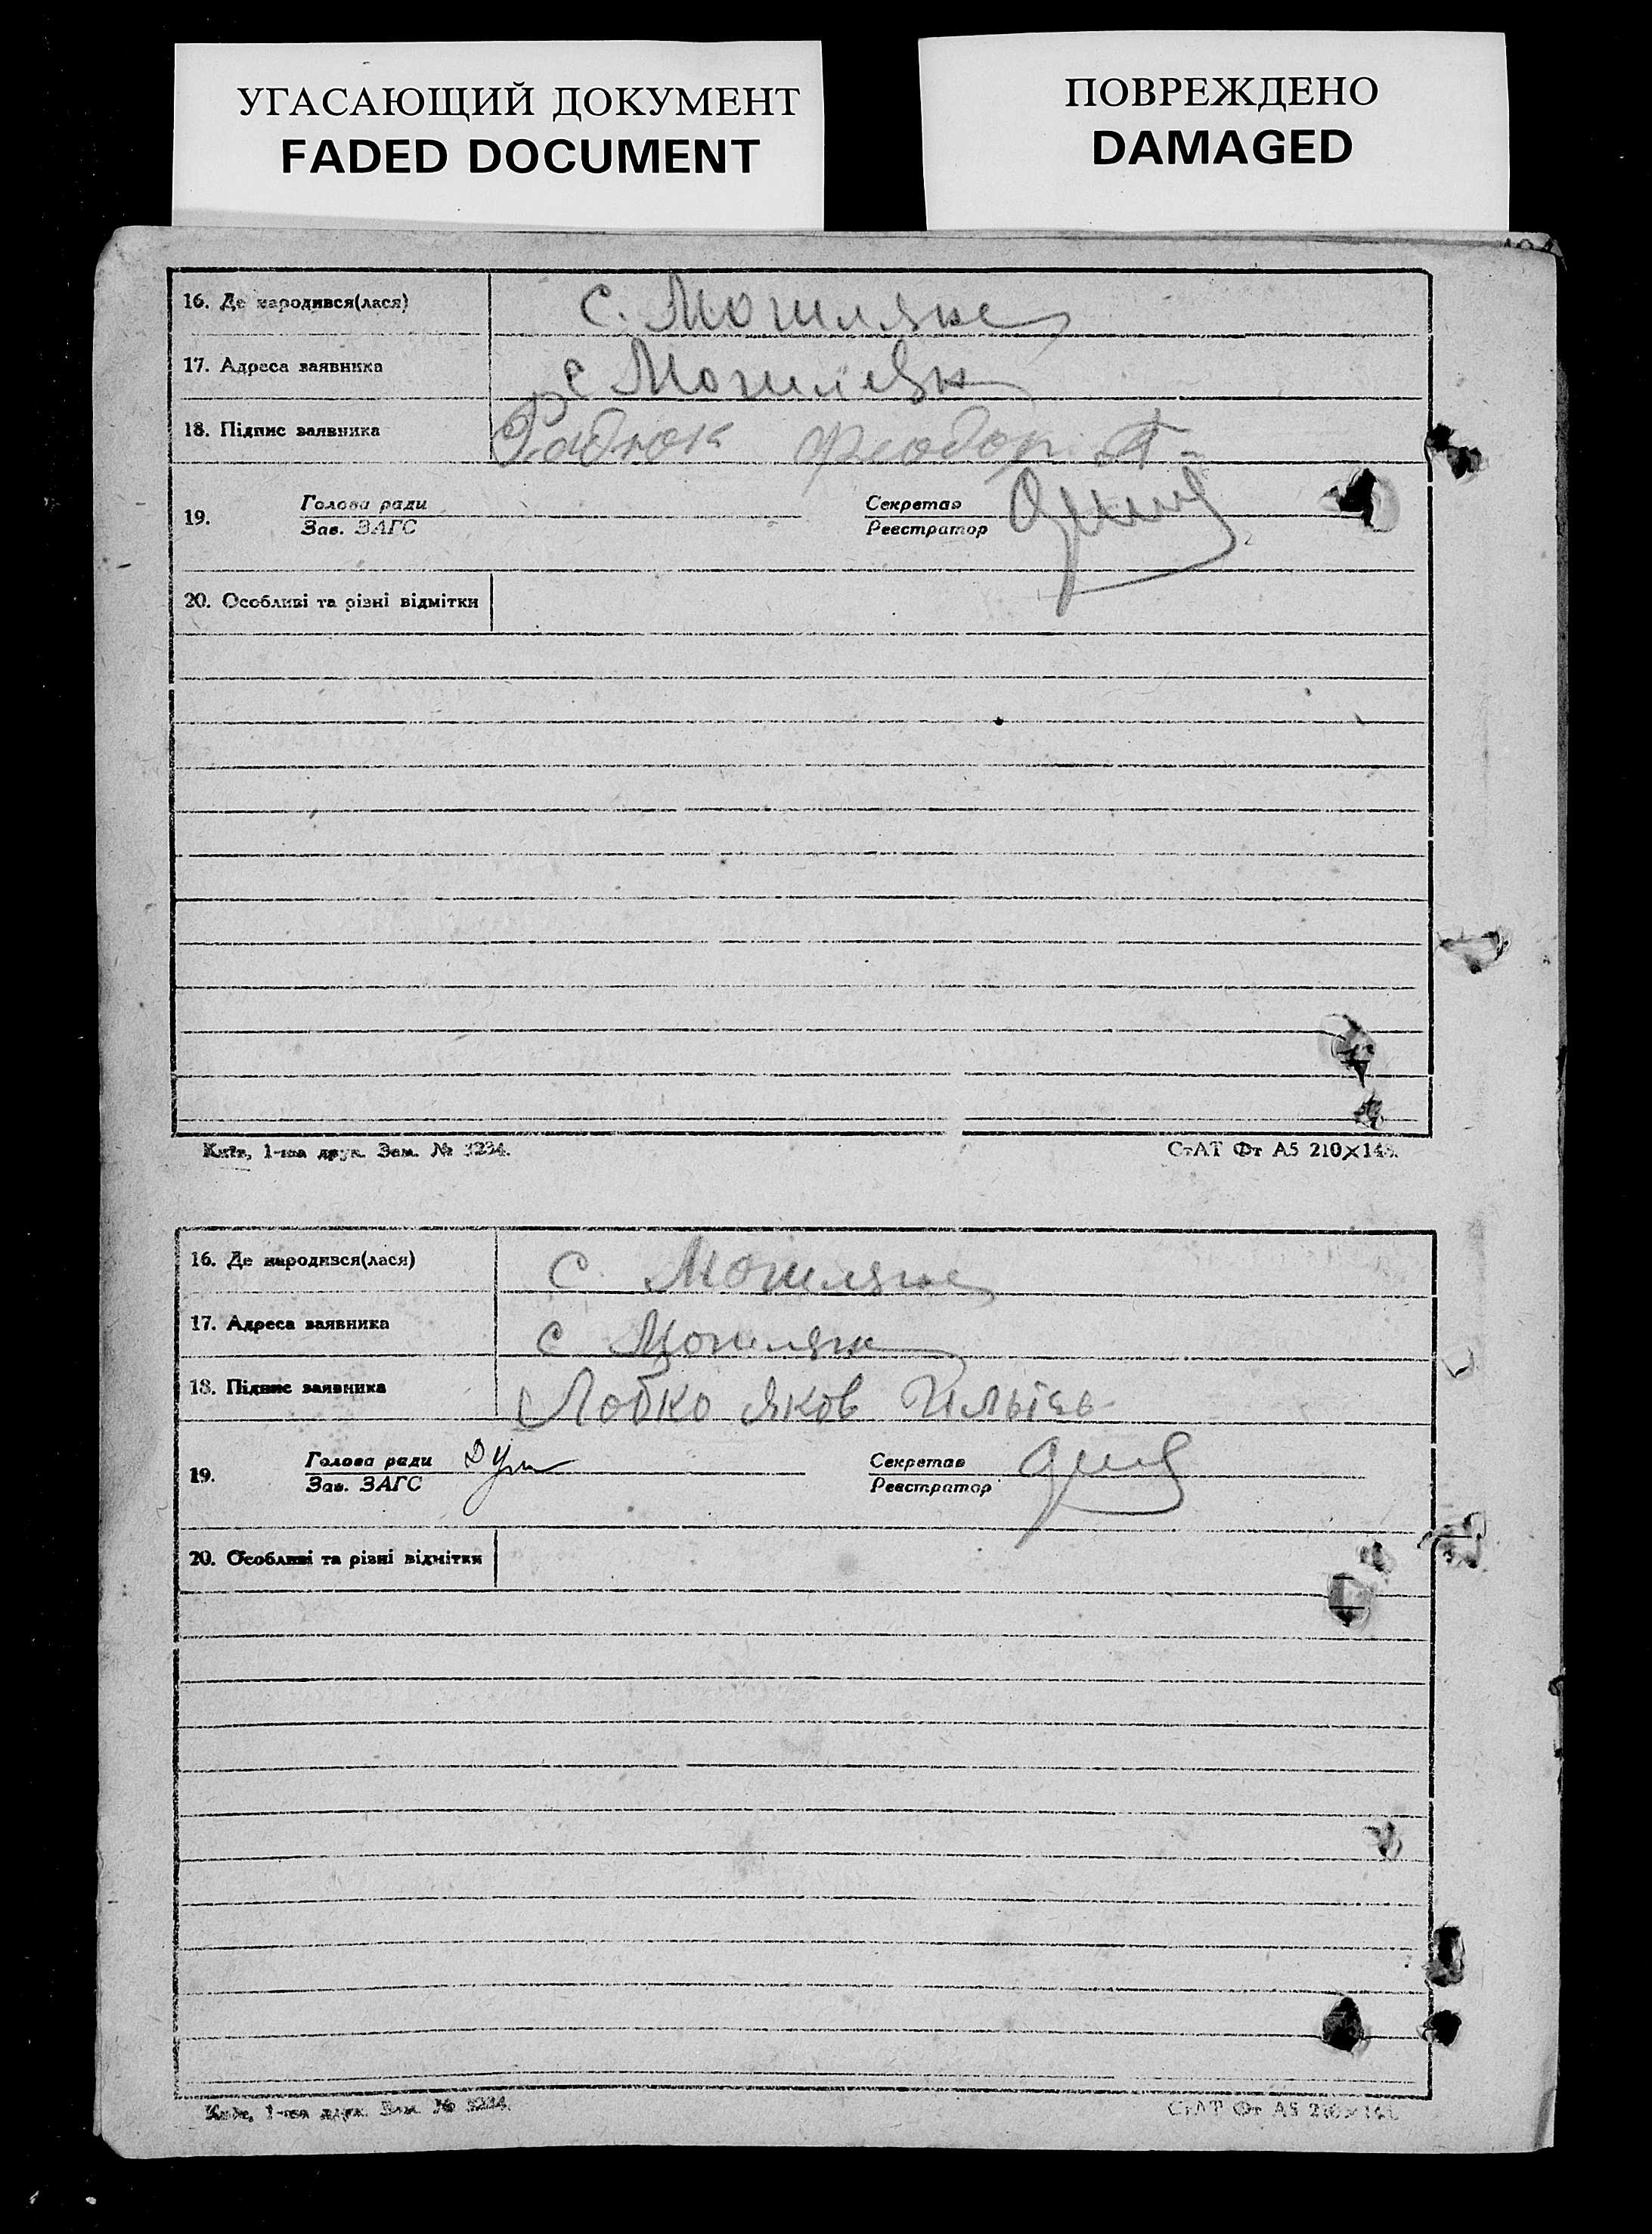 УГАСАЮЩИЙ ДОКУМЕНТ
FADED DOCUMENT
ПОВРЕЖДЕНО
DAMAGED
16. Де народився(лася) с.
17. Адреса заявника с
18. Підпис заявника Рабчюк Феодор
19. Голова ради
Зав. ЗАГС
Секретар
Реєстратор
20. Особливі та різні відмітки
Київ, 1-ша друк. Зам. № 3234.
СтАТ Фт А5 210×148.
16. Де народився(лася) с.
17. Адреса заявника с
18. Підпис заявника Лобко Яков
19. Голова ради
Зав. ЗАГС
Секретар
Реєстратор
20. Особливі та різні відмітки
Київ, 1-ша друк. Зам. № 3234.
СтАТ Фт А5 210×148.